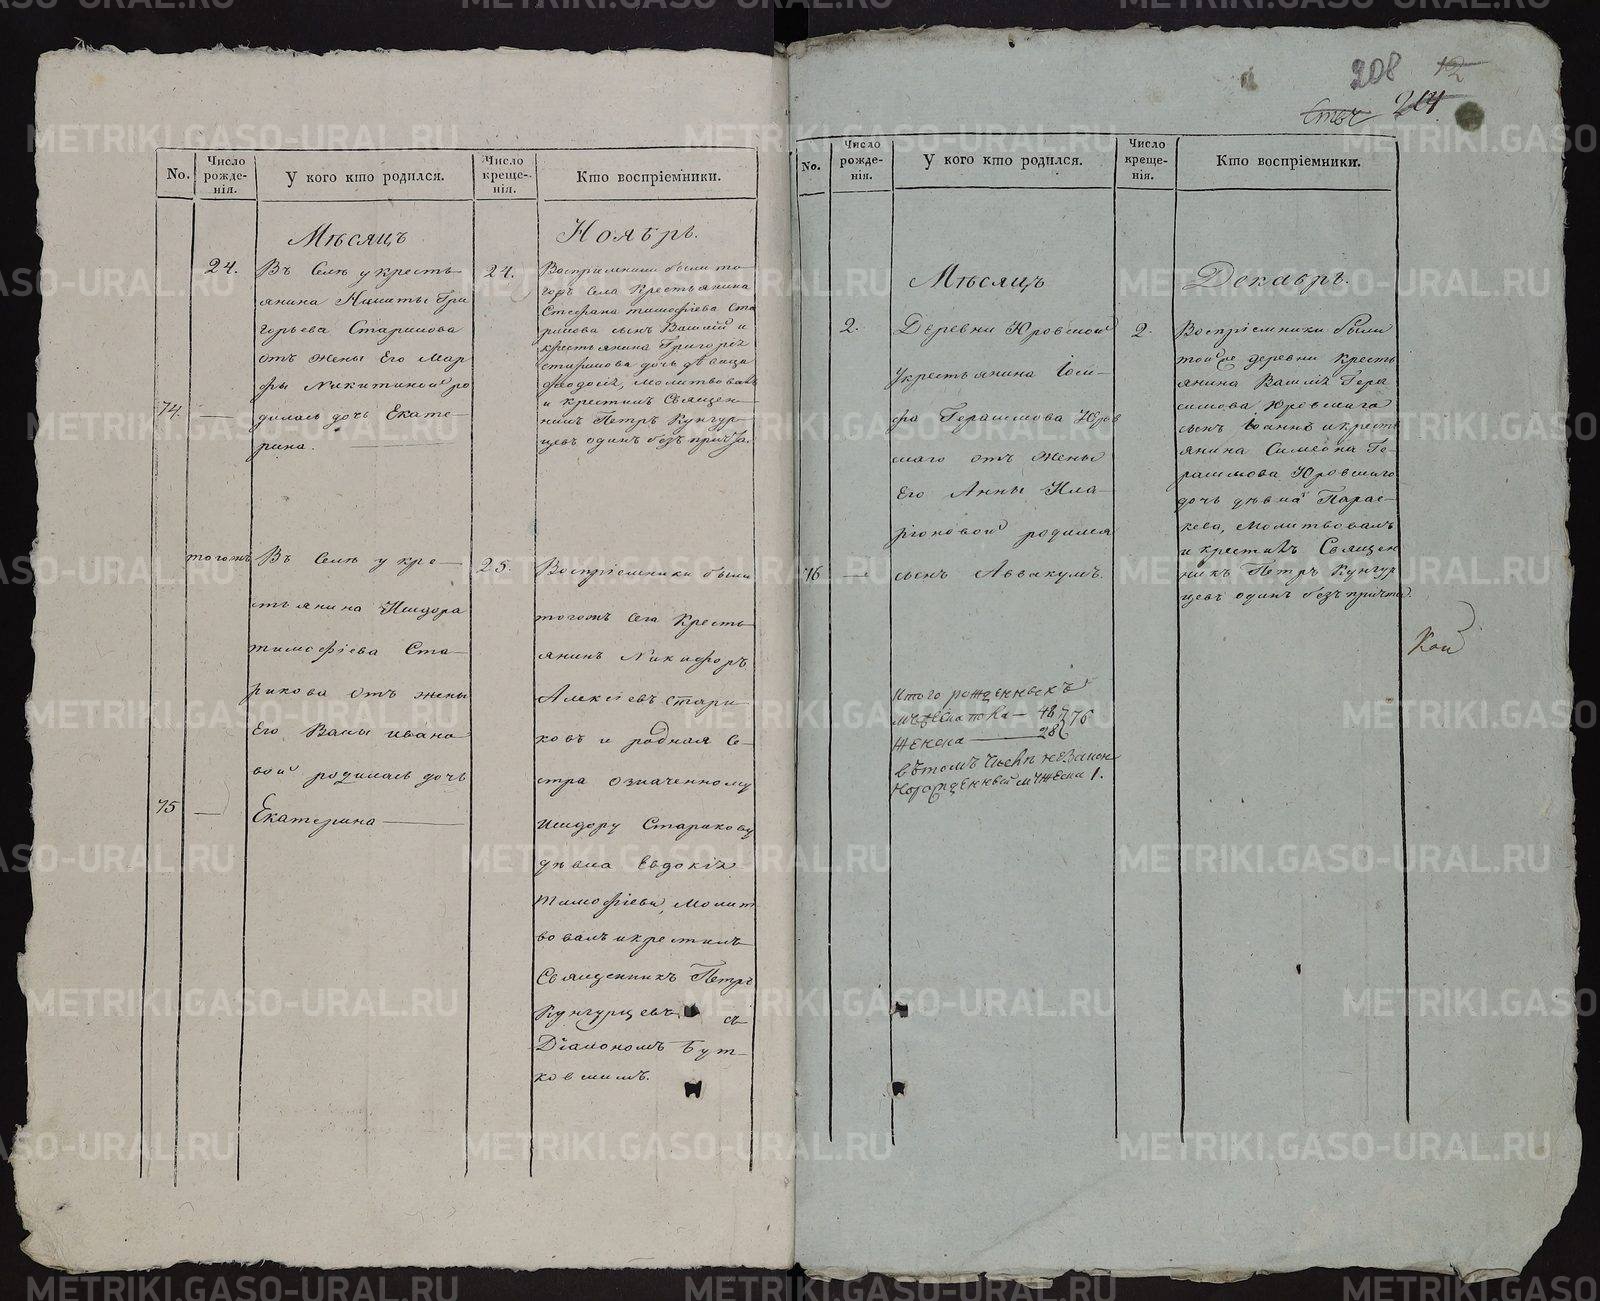 No.
Число рожде-нія.
У кого кто родился.
Число креще-нія.
Кто воспріемники.
Мѣсяцъ
Ноябрь.
24.
Въ Селѣ у кресть
янина Никиты Гри
горьева Старикова
отъ жены Его Мар
фы Никитиной ро
74.
дилась дочь Екате-
рина.
24.
Воспріемники были то-
гожъ Села Крестьянина
Стефана Тимофѣева Ста
рикова сынъ Василій и
крестьянина Григорія
Старикова дочь дѣвица
Феодосія, Молитвовалъ
и крестилъ Священ-
никъ Петръ Кунгур-
цевъ одинъ безъ причта.
тогожъ
Въ Селѣ у кре-
стьянина Исидора
Тимофѣева Ста-
рикова отъ жены
Его Вассы Ивано
вой родилась дочь
75
Екатерина
25.
Воспріемники были
тогожъ Села Кресть-
янинъ Никифоръ
Алексѣевъ Стари-
ковъ и родная Се-
стра означенному
Исидору Старикову
дѣвка Евдокія
Тимофѣева, Молит
вовалъ и крестилъ
Священникъ Петръ
Кунгурцевъ съ
Діакономъ Бут-
ковскимъ.
208
12
204
No.
Число рожде-нія.
У кого кто родился.
Число креще-нія.
Кто воспріемники.
Мѣсяцъ
Декабрь.
2.
Деревни Юровской
у крестьянина Іоси-
фа Герасимова Юров
скаго отъ жены
Его Анны Ила-
ріоновой родился
76
сынъ Аввакумъ.
2.
Воспріемники были
той же деревни Кресть
янина Василія Гера
симова Юровскаго
сынъ Іоаннъ и крестъ
янина Симеона Ге-
расимова Юровскаго
дочь дѣвка Парас-
кева, Молитвовалъ
и крестилъ Священ
никъ Петръ Кунгур
цевъ одинъ безъ причта.
Итого рожденныхъ
мужеска пола — 48 } 76
Женска — 28
въ томъ числѣ незакон
норожденный м. Женск 1.
METRIKI.GASO-URAL.RU